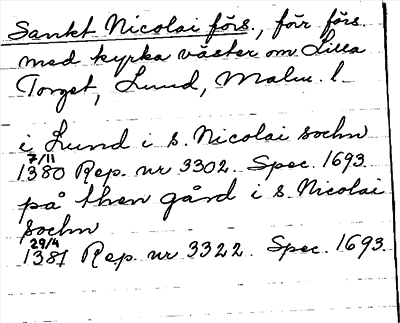 Sankt Nicolai förs., förr förs.
med kyrka väster om Lilla
Torget, Lund, Malm. l.
i Lund i s. Nicolai sochn
7/11
1380 Rep. nr 3302. Spec. 1693.
på then gård i s. Nicolai
sochn
29/4
1381 Rep. nr 3322. Spec. 1693.